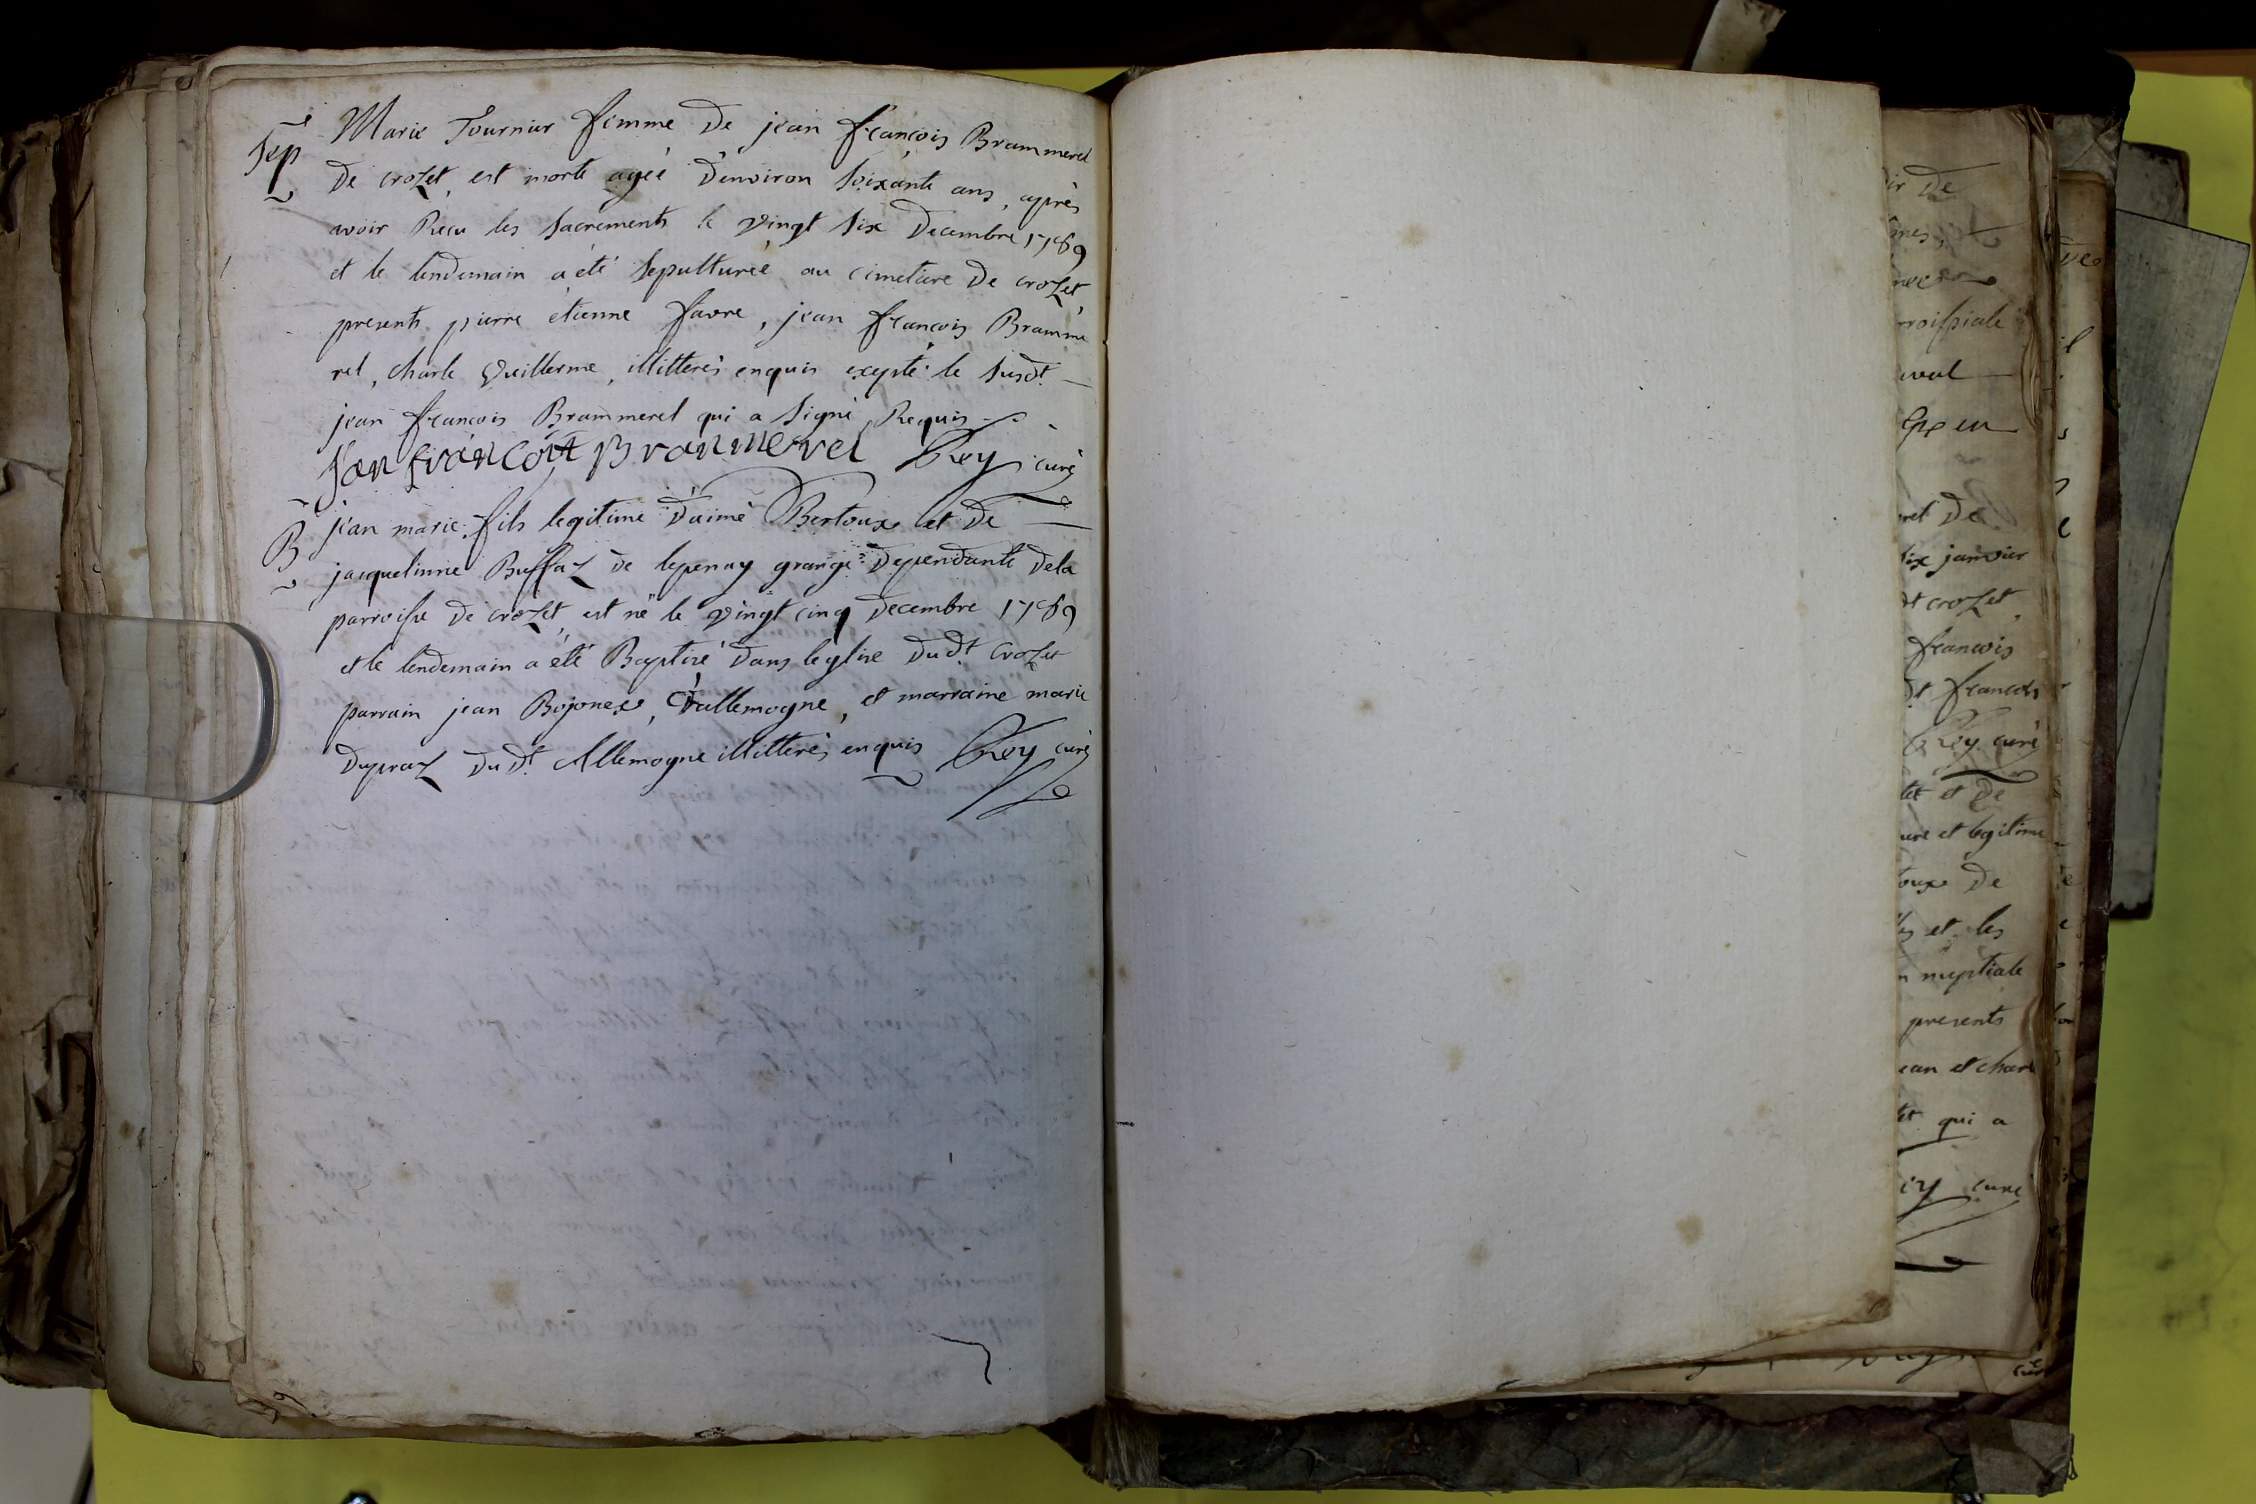 Sep
Marie Tournier femme De jean françois Brammerel
De croZet, est morte agéé D'environ soixante ans, après
avoir Recu les sacrements le vingt six Decembre 1769
et le lendemain a été sepulturéé au cimetiere De croZet,
presents pierre etienne favre, jean francois Bramme
rel, charle Vuillerme, illitterés enquis exepté le susdt.
jean francois Brammerel qui a signé Requis
Jan françoit Branmerel Rey curé
B
jean marie fils legitime D'aimé Bertoux et De
jacquelinne BuffaZ de lepenay grange Dependante Dela
parroisse De croZet, est né le vingt cinq Decembre 1769
et le lendemain a été Baptisé Dans leglise Dudt. CroZet
parrain jean Bojonex, D'allemogne, et marraine marie
DupraZ Dudt. Allemogne illitterés enquis Rey curé
ir De
six janvier
dt croZet,
francois
dt francois
Rey curé
et De
ure et legitime
oux De
et les
nuptiale
presents
ean et charl
qui a
ey curé